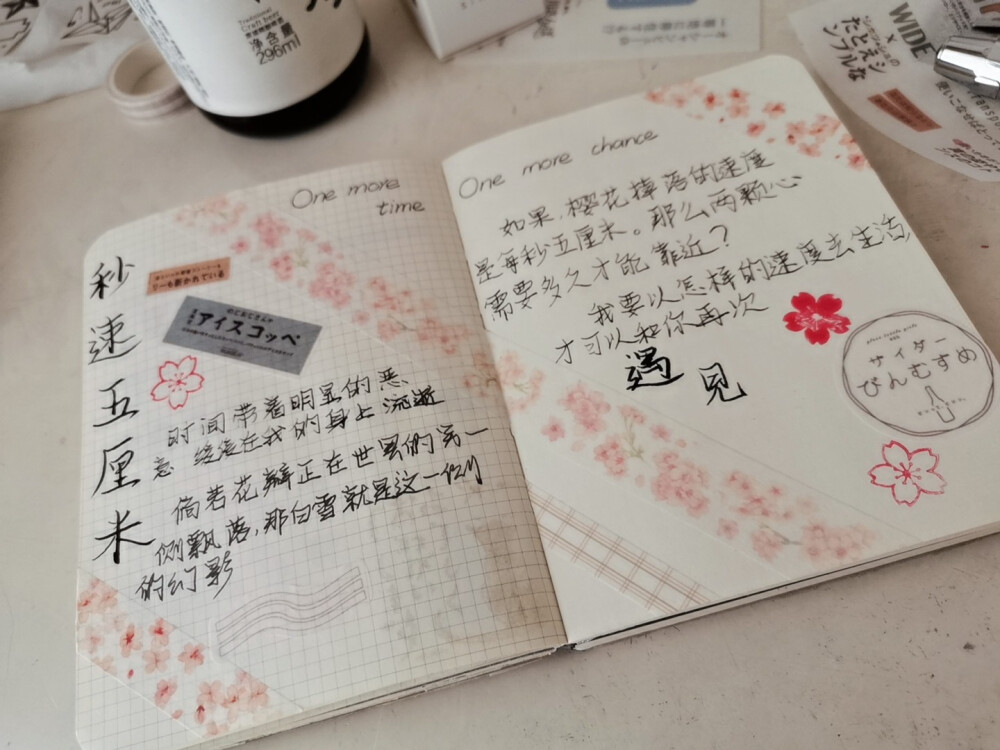 Traditional
Craft beer
净含量
296ml
WIDE
たとえシ
ンプルな
One more
time
秒速五厘米
ーも書かれている
アイスコッペ
时间带着明显的恶
意 缓缓在我的身上流逝
倘若花瓣正在世界的另一
侧飘落,那白雪就是这一侧
的幻影
One more chance
如果,樱花掉落的速度
是每秒五厘米。那么两颗心
需要多久才能靠近?
我要以怎样的速度去生活,
才可以和你再次
遇见
サイダー
びんむすめ